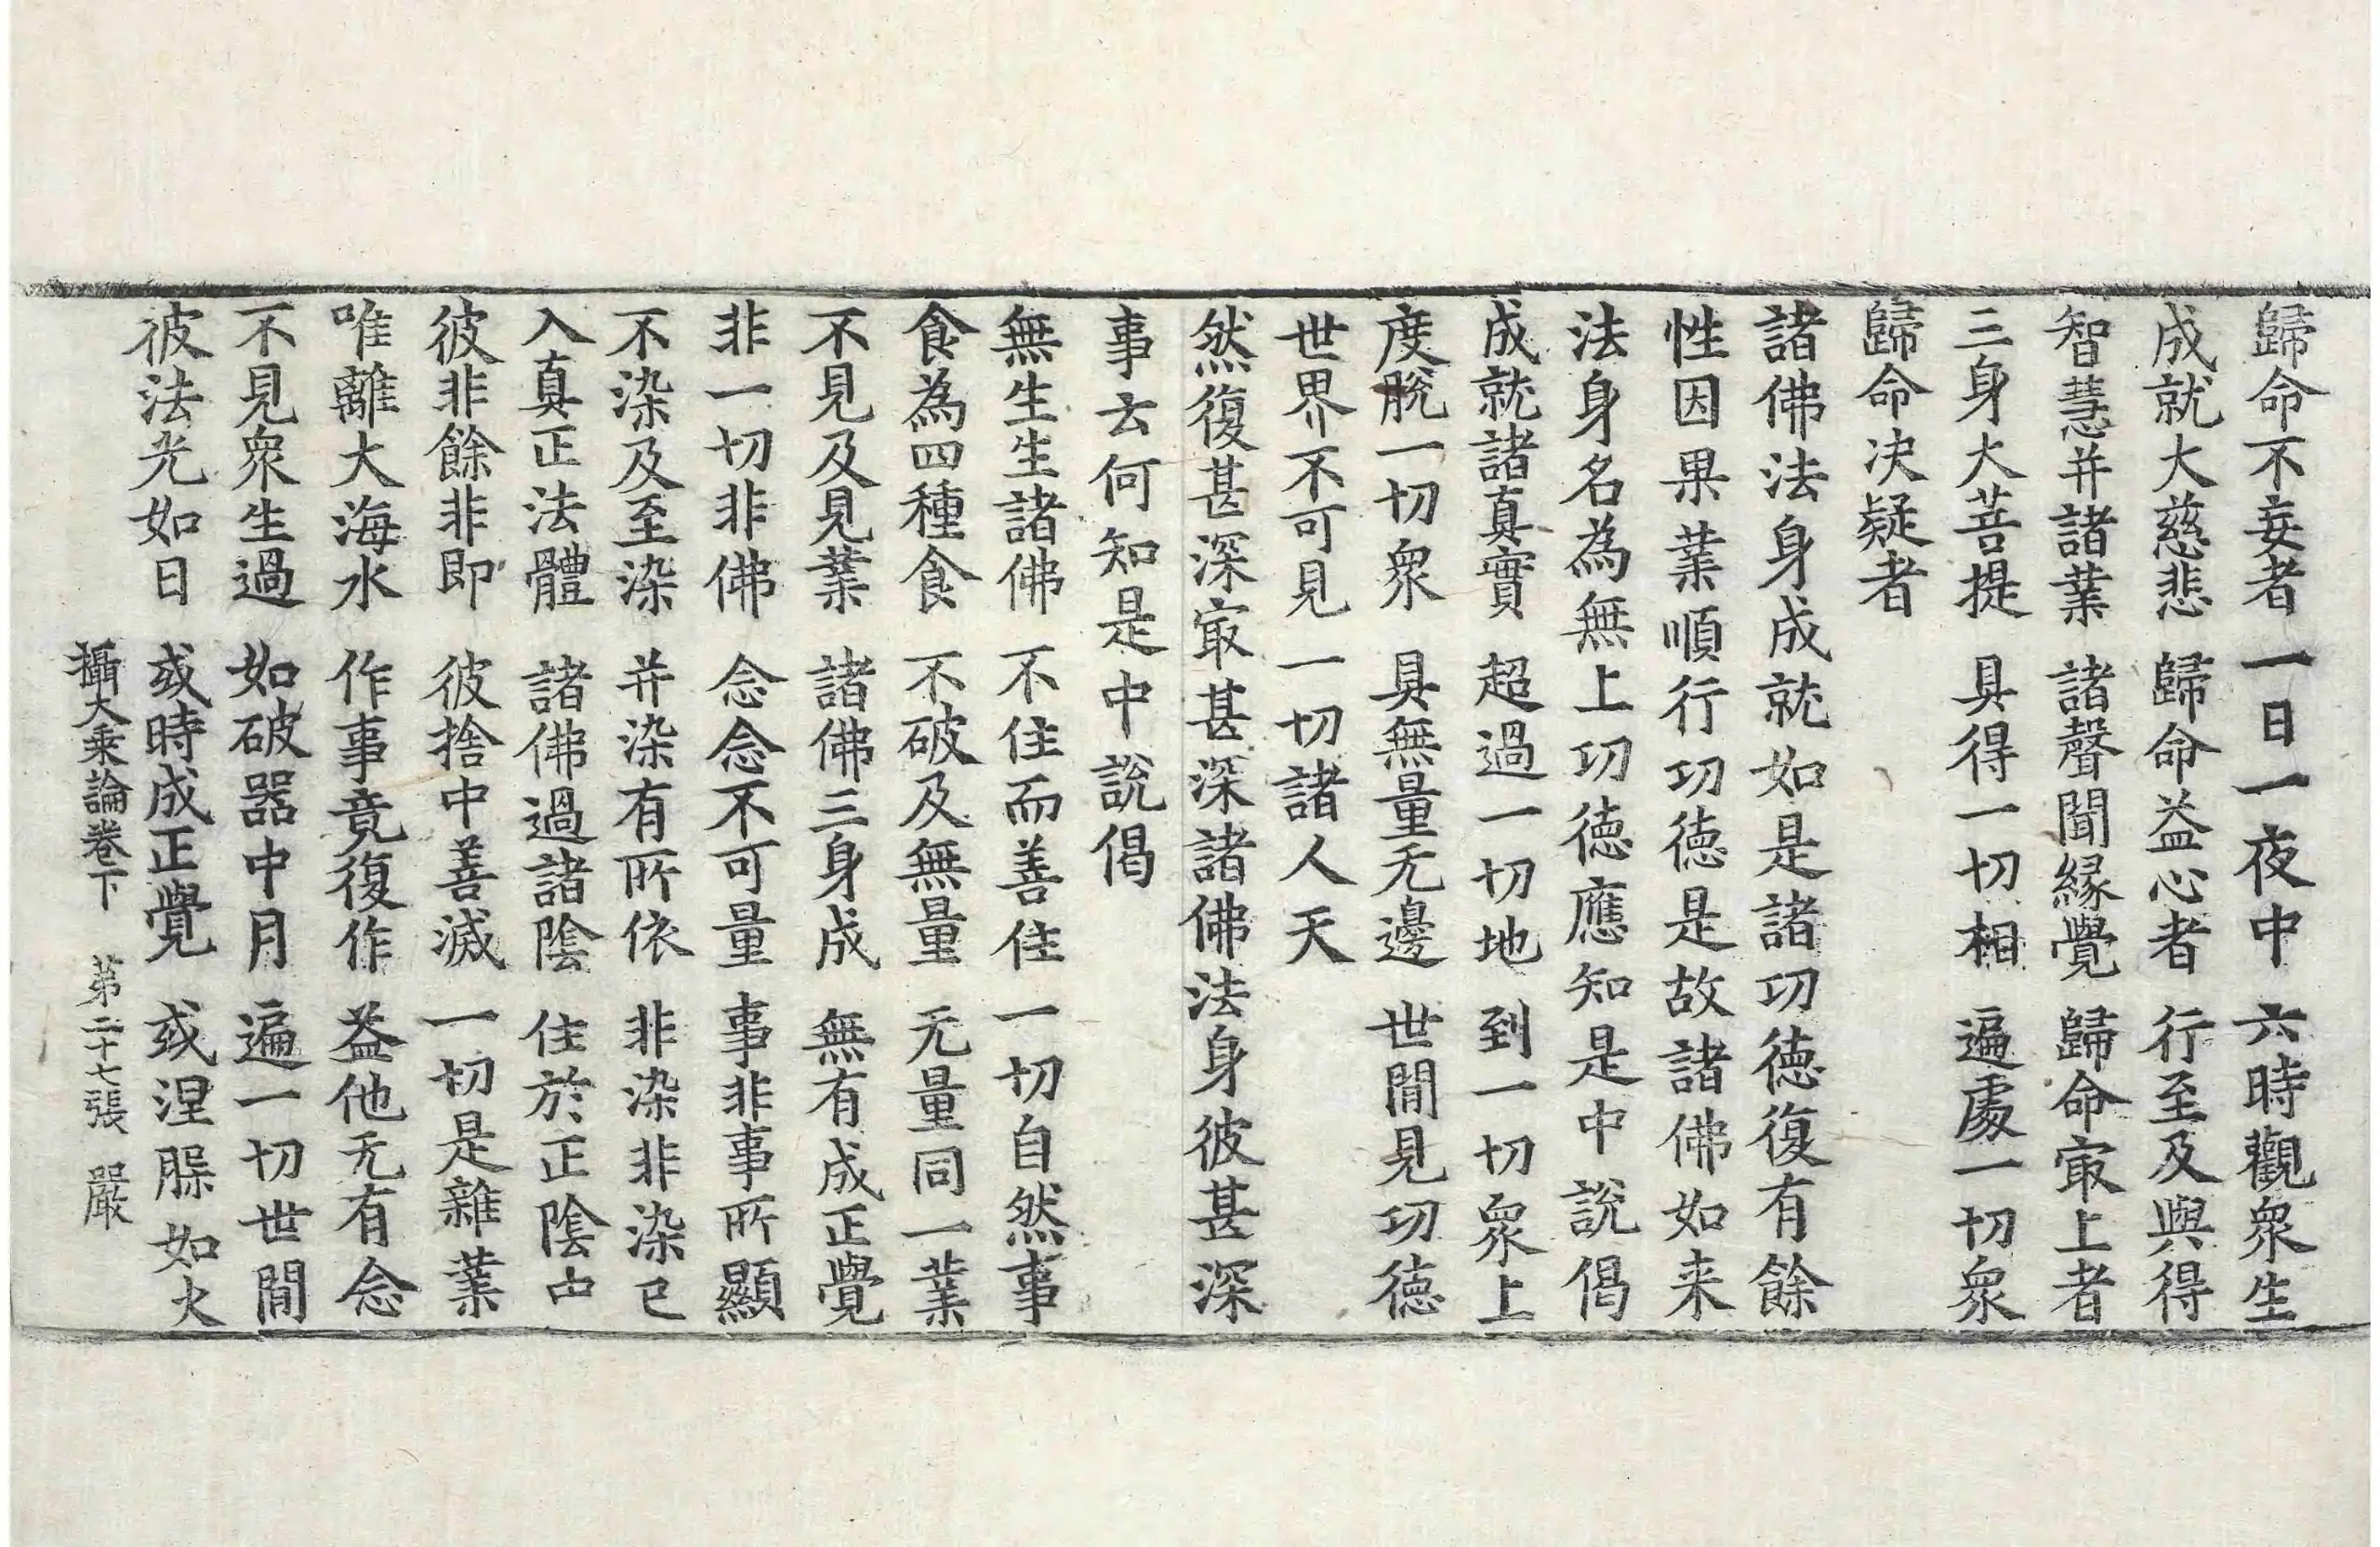 歸命不妄者 一日一夜中 六時觀衆生
成就大慈悲 歸命益心者 行至及與得
智慧并諸業 諸聲聞緣覺 歸命㝡上者
三身大菩提 具得一切相 遍處一切衆
歸命决疑者
諸佛法身成就如是諸功德復有餘
性因果業順行功德是故諸佛如来
法身名為無上功德應知是中說偈
成就諸真實 超過一切地 到一切衆上
度脫一切衆 具無量无邊 世間見功德
世界不可見 一切諸人天
然復甚深㝡甚深諸佛法身彼甚深
事云何知是中說偈
無生生諸佛 不住而善住 一切自然事
食為四種食 不破及無量 无量同一業
不見及見業 諸佛三身成 無有成正覺
非一切非佛 念念不可量 事非事所顯
不染及至染 并染有所依 非染非染已
入真正法體 諸佛過諸陰 住於正陰中
彼非餘非即 彼捨中善滅 一切是雜業
唯離大海水 作事竟復作 益他无有念
不見衆生過 如破器中月 遍一切世間
彼法光如日 或時成正覺 或涅槃如火
攝大乘論卷下 第二十七張 嚴